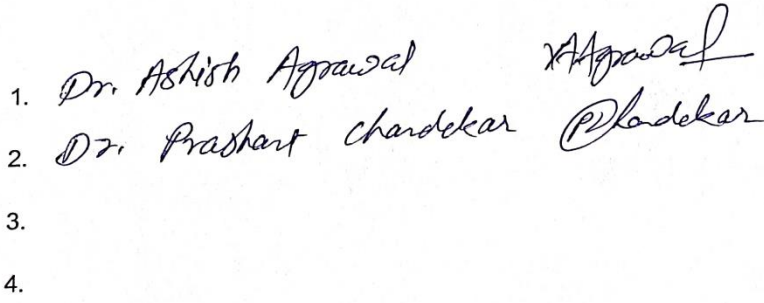 1. Dr. Ashish Agrawal AAgrawal
2. Dr. Prashant Chandekar PChandekar
3.
4.